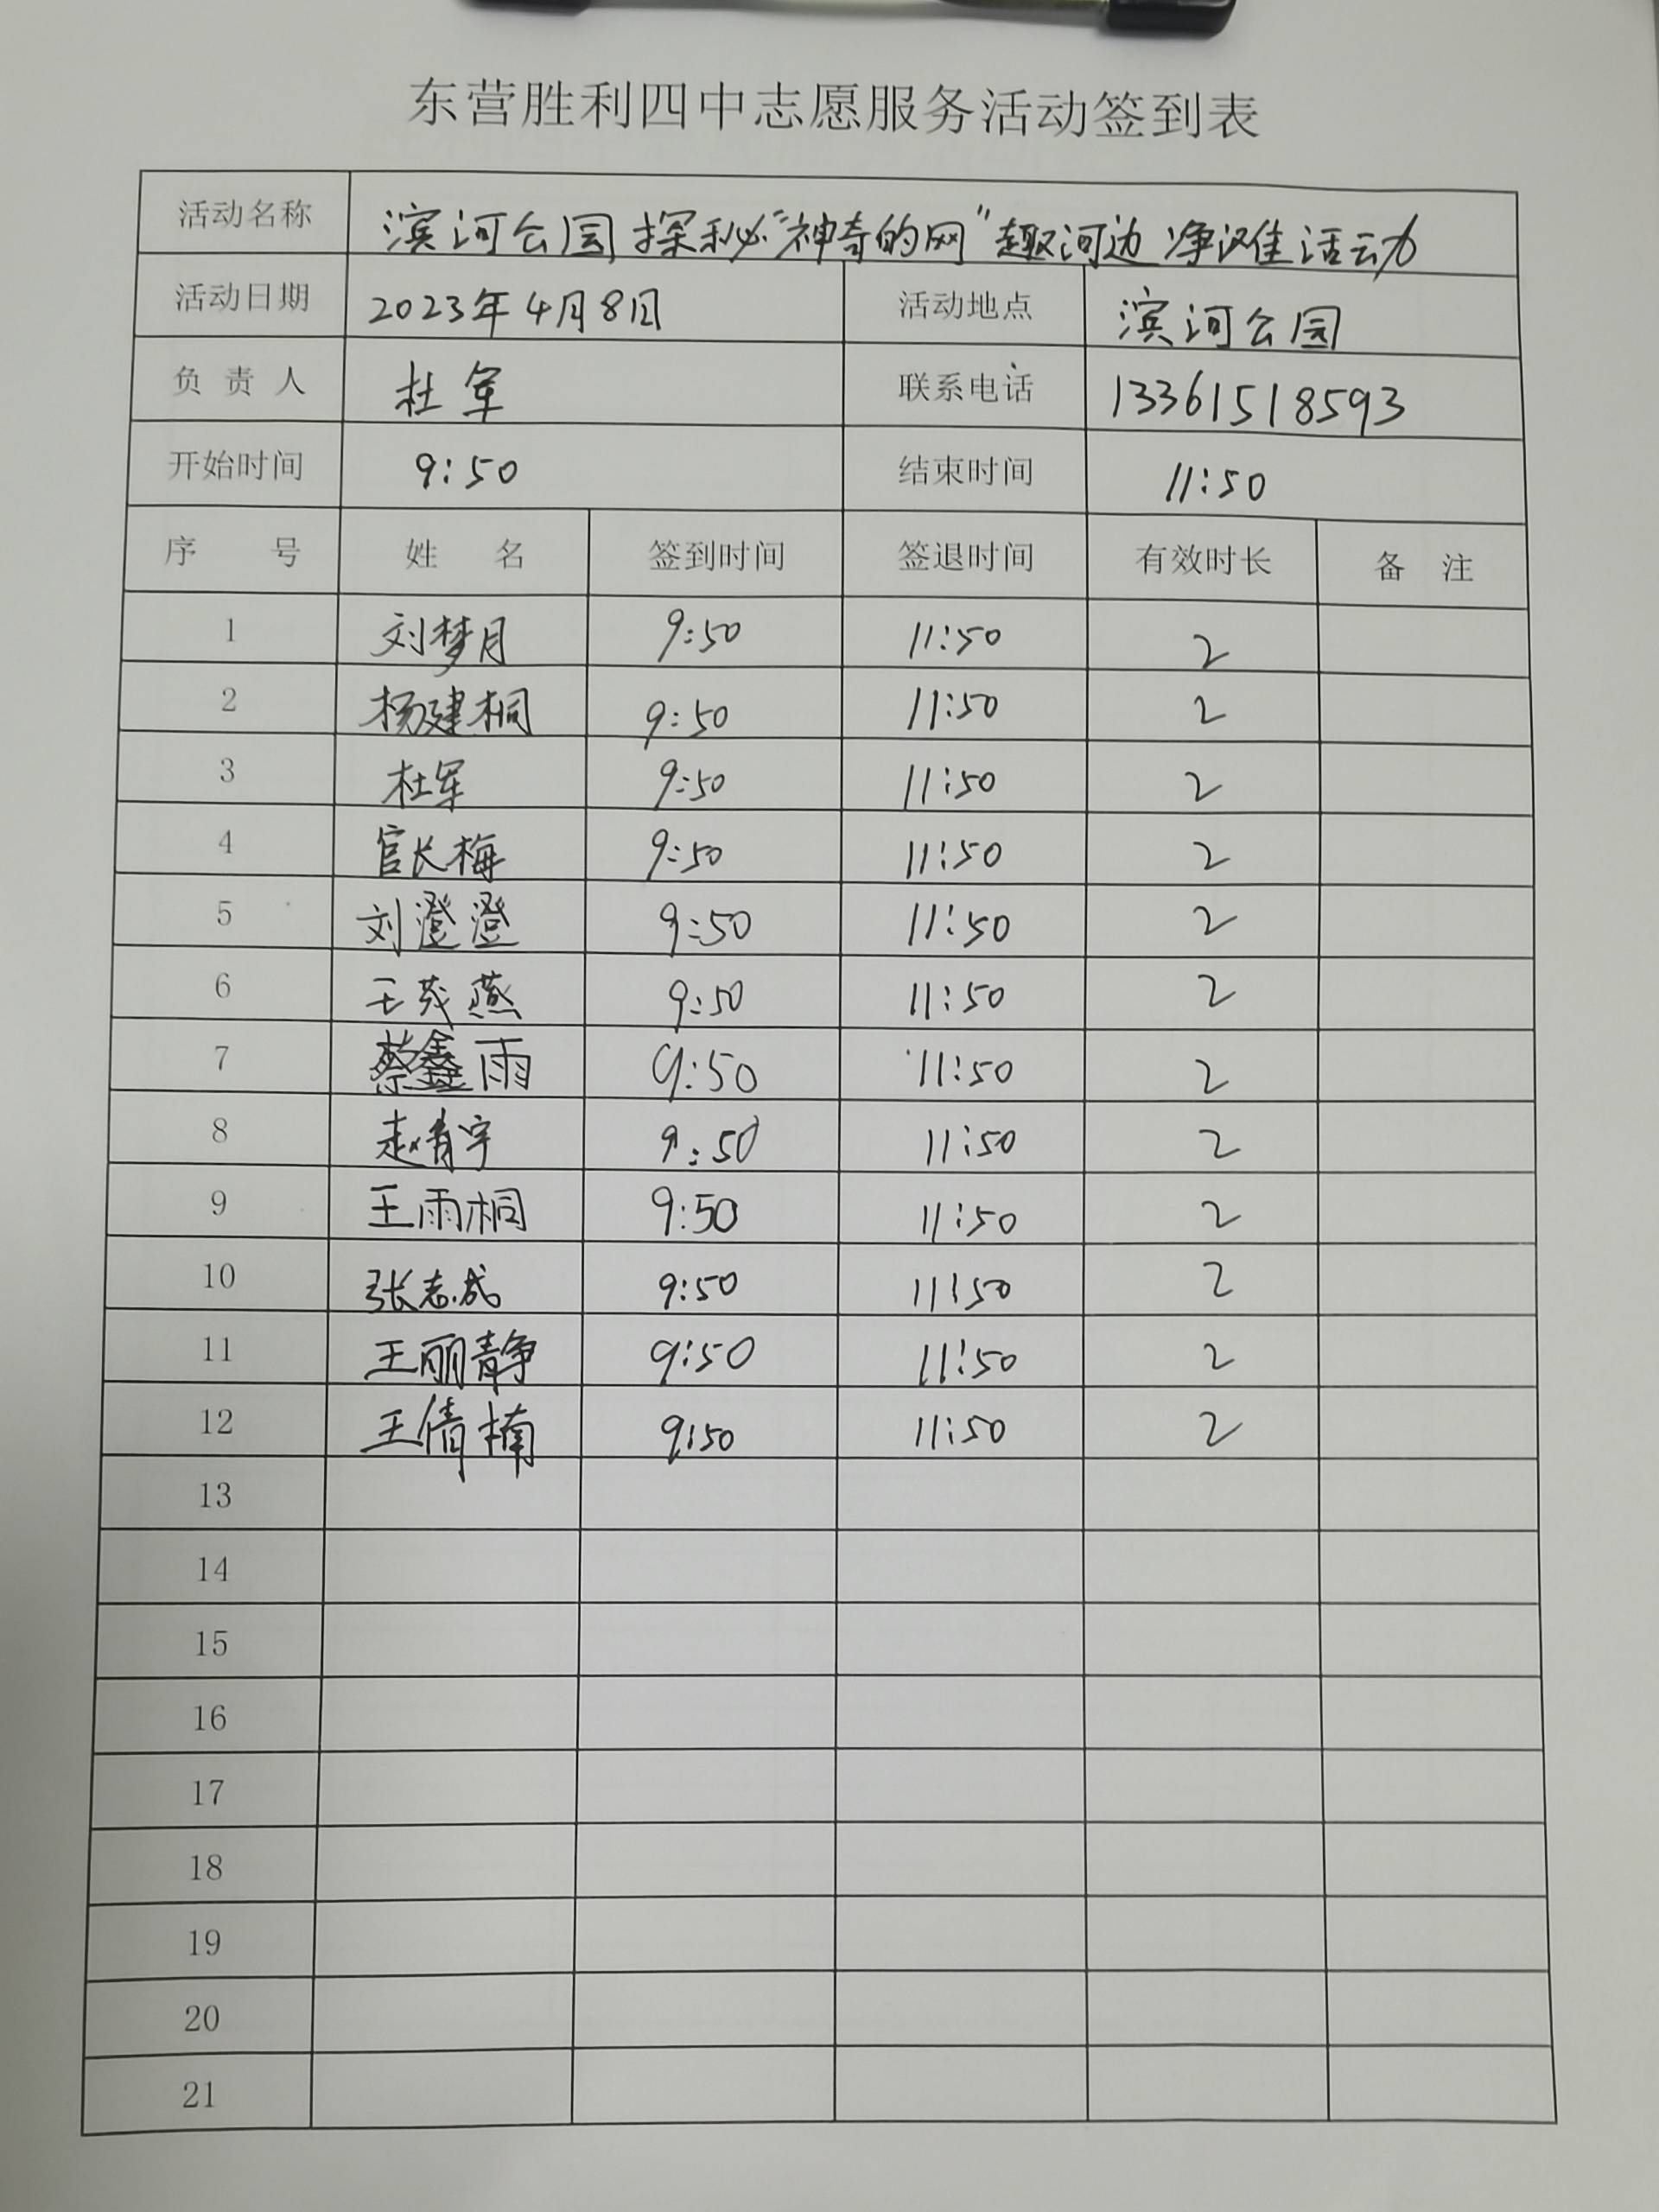 东营胜利四中志愿服务活动签到表
活动名称 滨河公园探秘"神奇的网"趣河边净滩活动
活动日期 2023年4月8日 活动地点 滨河公园
负责人 杜军 联系电话 13361518593
开始时间 9:50 结束时间 11:50
序号 姓名 签到时间 签退时间 有效时长 备注
1 刘梦月 9:50 11:50 2
2 杨建桐 9:50 11:50 2
3 杜军 9:50 11:50 2
4 官长梅 9:50 11:50 2
5 刘澄澄 9:50 11:50 2
6 王茂燕 9:50 11:50 2
7 蔡鑫雨 9:50 11:50 2
8 赵肯宇 9:50 11:50 2
9 王雨桐 9:50 11:50 2
10 张志成 9:50 11:50 2
11 王丽静 9:50 11:50 2
12 王倩楠 9:50 11:50 2
13
14
15
16
17
18
19
20
21